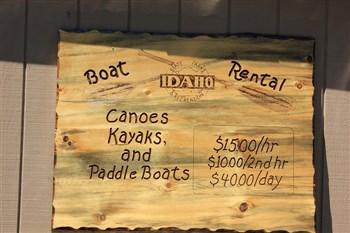 Boat IDAHO Rental
Canoes
Kayaks,
and
Paddle Boats
$15.00/hr
$10.00/2nd hr
$40.00/day